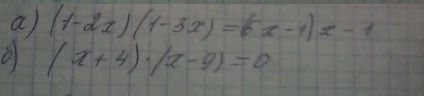 а) (1-2x)(1-3x)=(6x-1)x-1
б) (x+4)·(x-9)=0